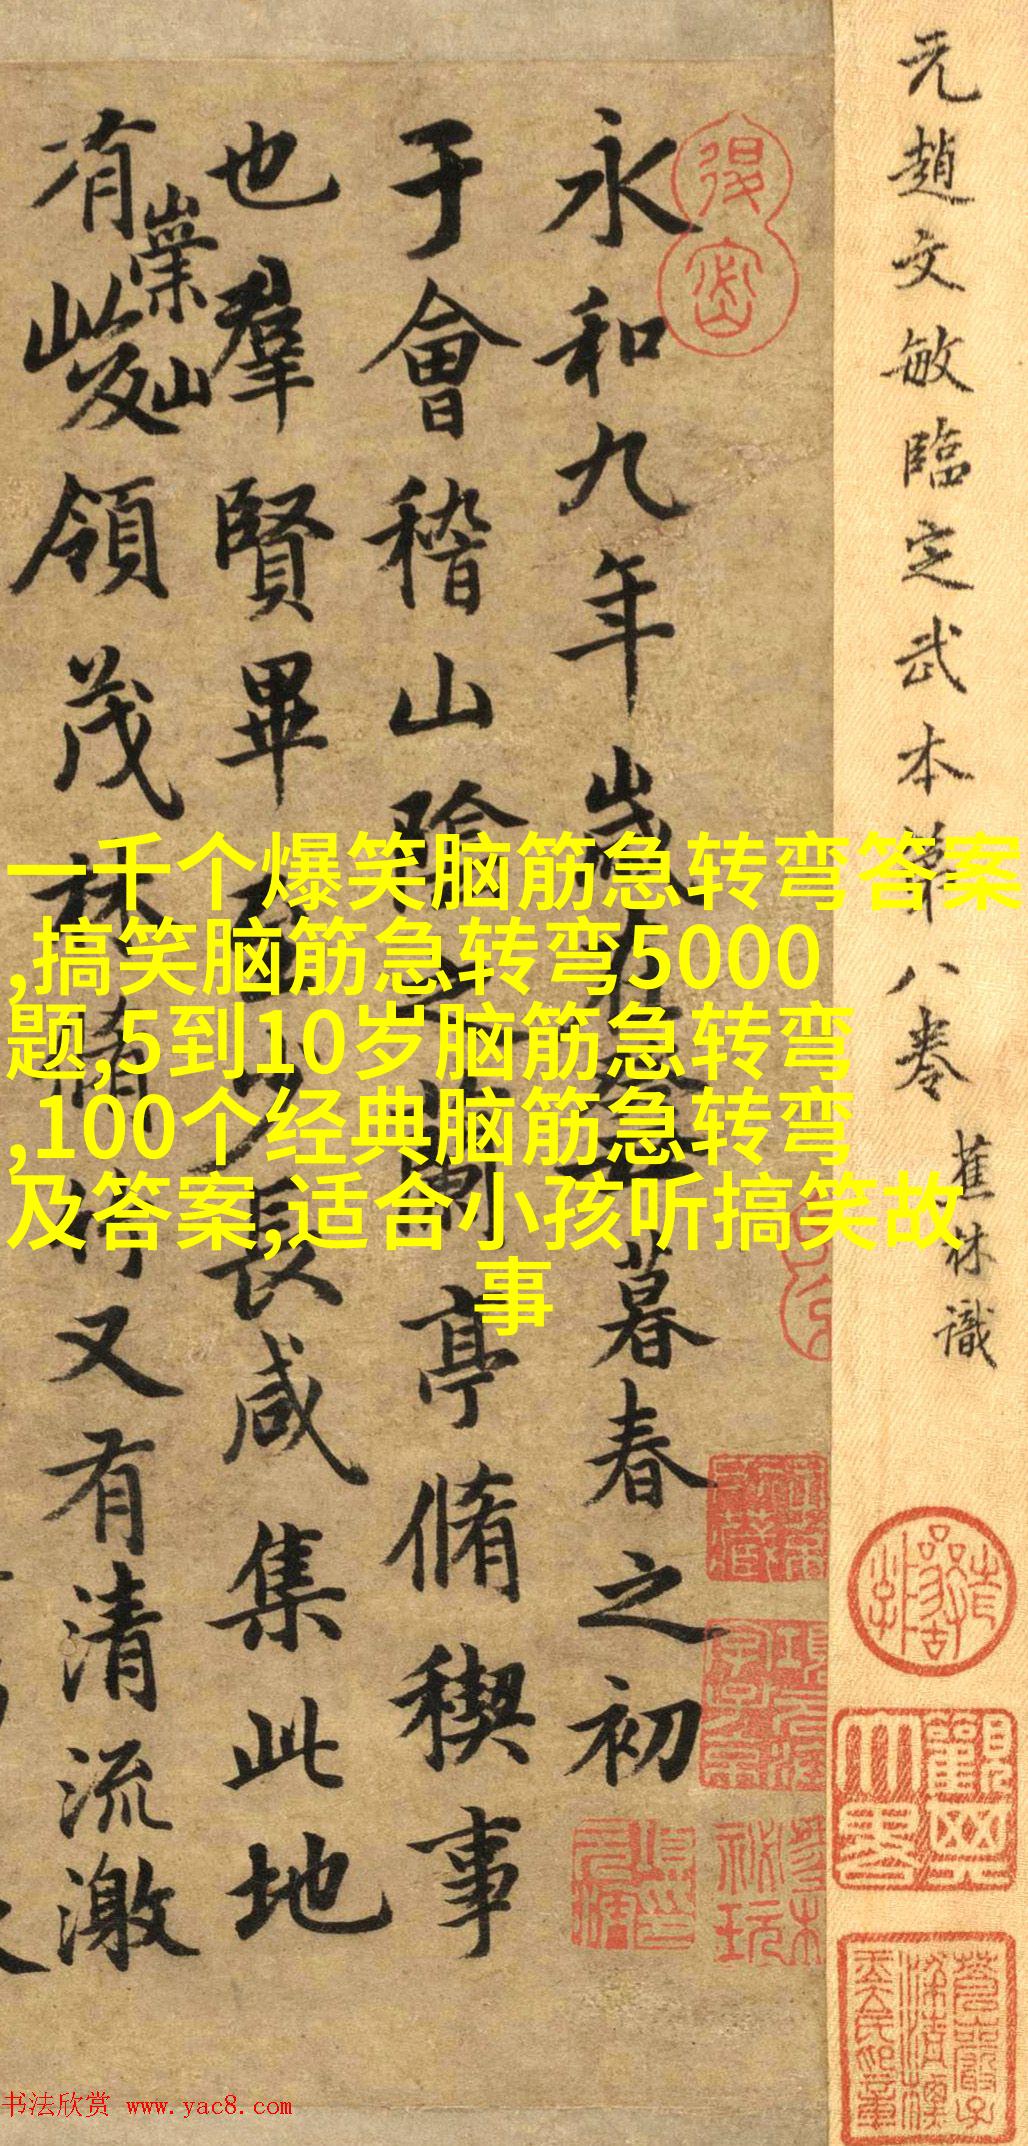 元趙文敏臨定武本第八卷
蕉林識
永和九年歲在癸丑暮春之初
于會稽山陰之蘭亭脩稧事
也羣賢畢至少長咸集此地
有崇山峻領茂林脩竹又有清流激
一千个爆笑脑筋急转弯答案
,搞笑脑筋急转弯5000
题,5到10岁脑筋急转弯
,100个经典脑筋急转弯
及答案,适合小孩听搞笑故
事
书法欣赏 www.yac8.com